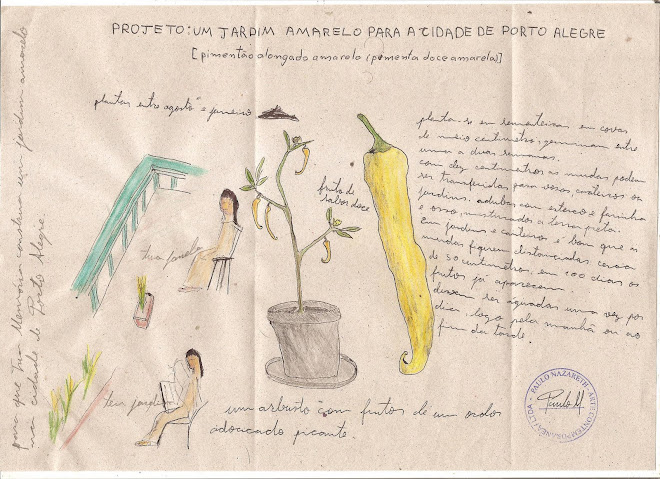 PROJETO: UM JARDIM AMARELO PARA A CIDADE DE PORTO ALEGRE
[pimentão alongado amarelo (pimenta doce amarela)]
plantas entre agosto e janeiro
planta-se em sementeiras em covas
de meio centímetro, germinam entre
uma a duas semanas.
com dez centímetros as mudas podem
ser transferidas para vasos, canteiros ou
jardins. adubar com esterco e farinha
e osso, misturados a terra preta.
Em jardins e canteiros é bom que as
mudas fiquem distanciadas cerca
de 50 centímetros. em 100 dias os
frutos já aparecem.
devem ser aguadas uma vez por
dia: logo pela manhã ou ao
fim da tarde.
fruto de
sabor doce
tua janela
teu jardim
um arbusto com frutos de um
adocicado picante.
para que tua Memória construa um jardim amarelo
na cidade de Porto Alegre.
PAULO NAZARETH - ARTE CONTEMPORÂNEA / LTDA